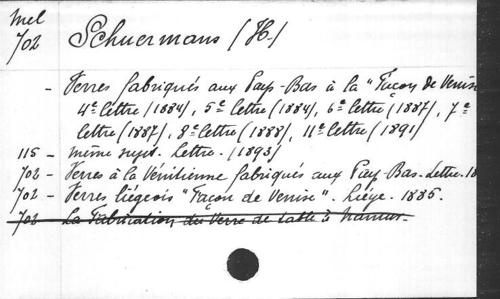 Mel
702 Schuermans (H.)
- Verres fabriqués aux Pays-Bas à la "Façon de Venise
4e lettre (1884), 5e lettre (1884), 6e lettre (1887), 7e
lettre (1887), 8e lettre (1888), 11e lettre (1891)
115 - même sujet. Lettre. (1893)
702 - Verres à la Vénitienne fabriqués aux Pays-Bas. Lettre. 18
702 - Verres liégeois "Façon de Venise". Liége. 1885.
702 - La Fabrication du Verre de table à Namur.